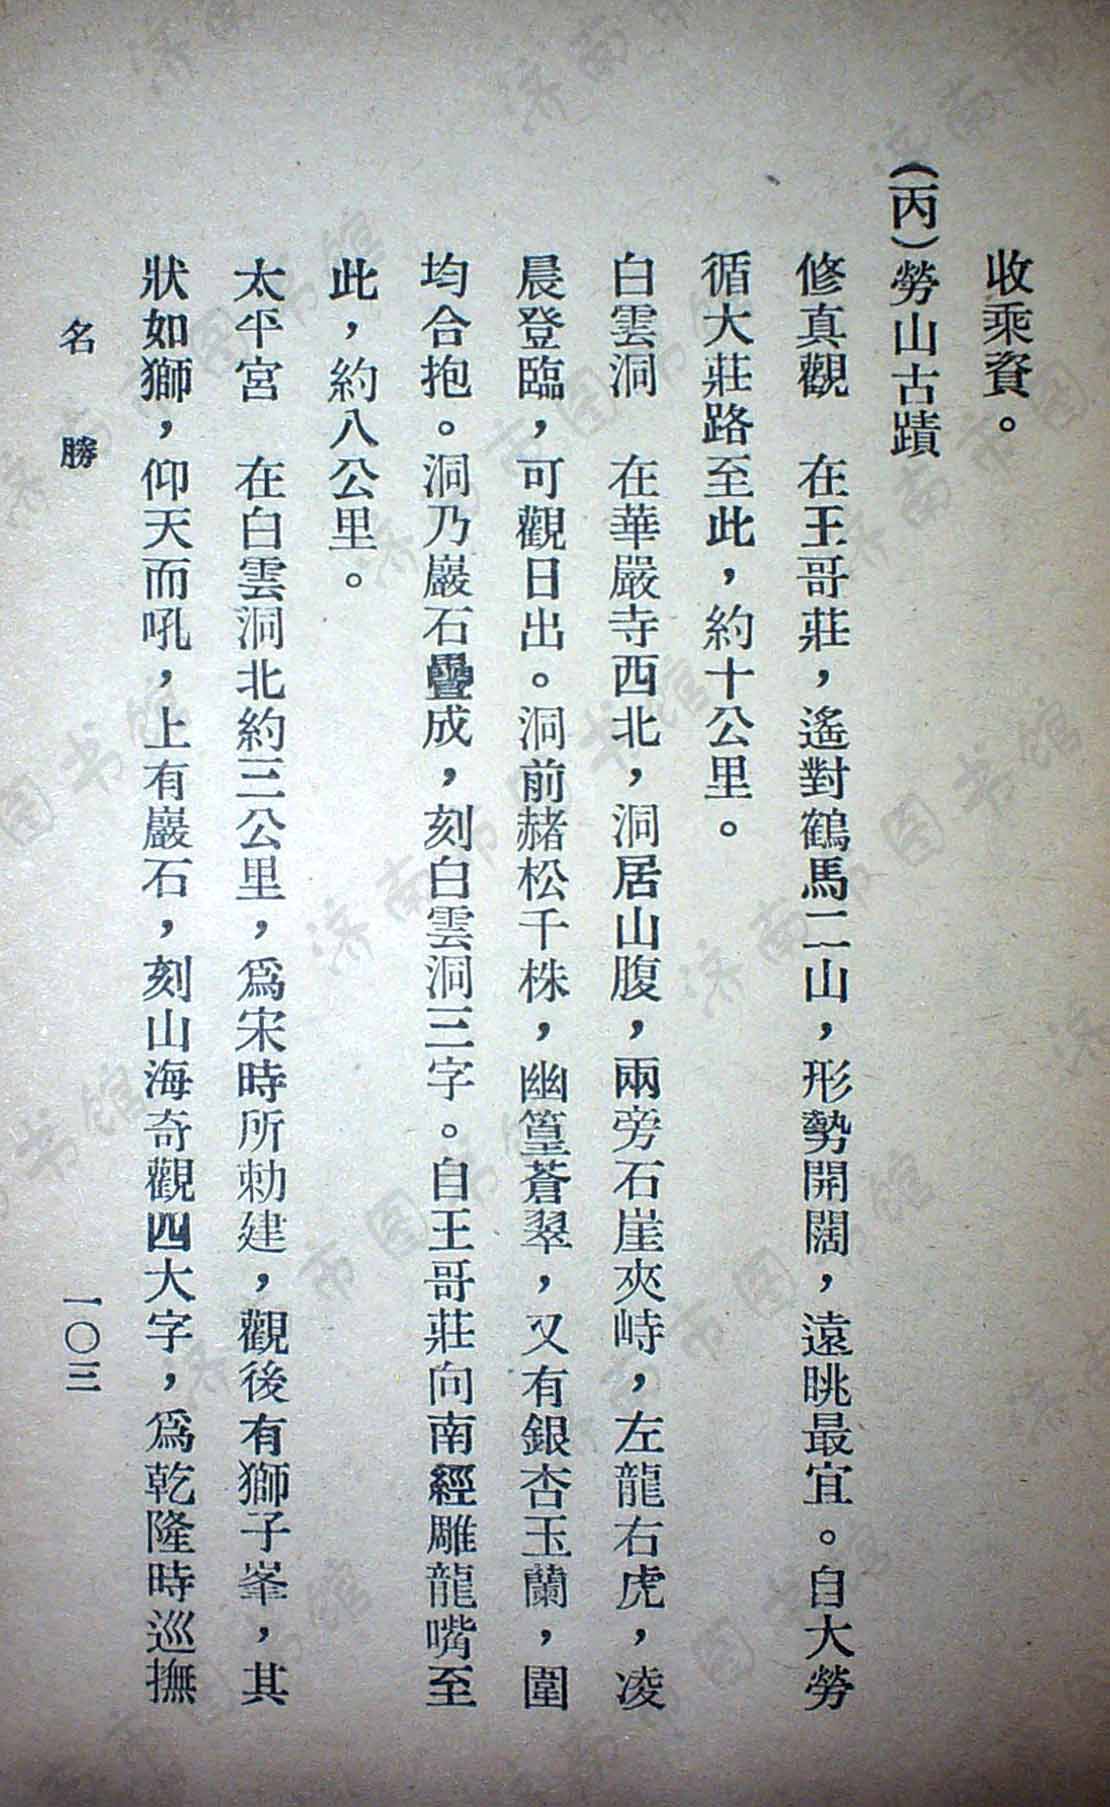 收乘資。
(丙)勞山古蹟
修真觀　在王哥莊，遙對鶴馬二山，形勢開闊，遠眺最宜。自大勞
循大莊路至此，約十公里。
白雲洞　在華嚴寺西北，洞居山腹，兩旁石崖夾峙，左龍右虎，凌
晨登臨，可觀日出。洞前赭松千株，幽篁蒼翠，又有銀杏玉蘭，圍
均合抱。洞乃巖石疊成，刻白雲洞三字。自王哥莊向南經雕龍嘴至
此，約八公里。
太平宮　在白雲洞北約三公里，爲宋時所勅建，觀後有獅子峯，其
狀如獅，仰天而吼，上有巖石，刻山海奇觀四大字，爲乾隆時巡撫
名　勝　一〇三
济南市图书馆